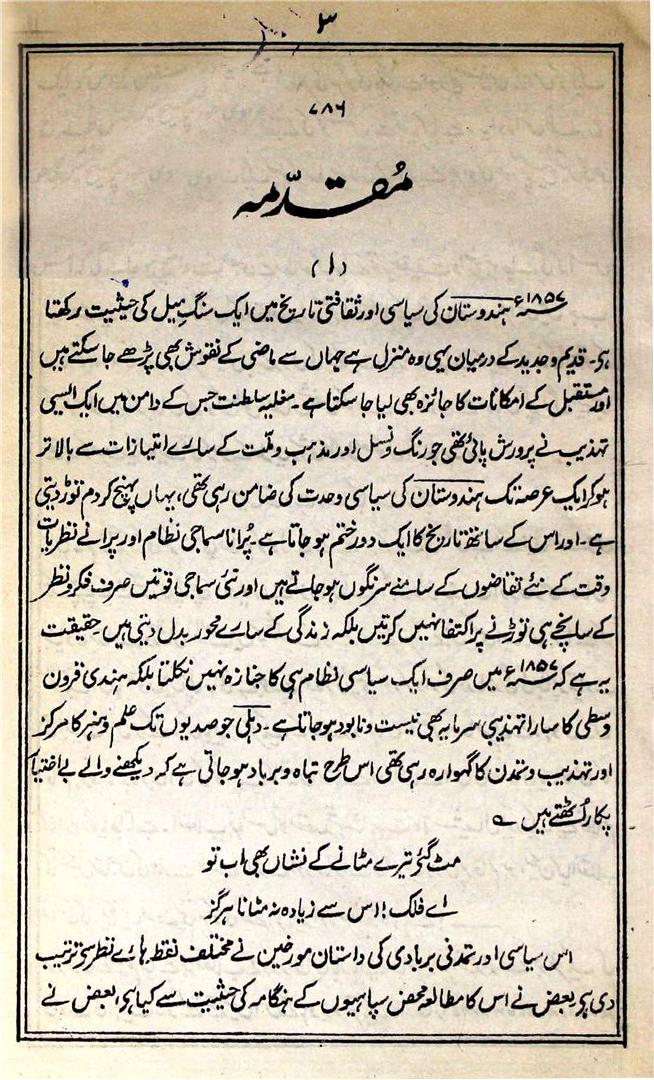 ۳
۷۸۶
مُقدّمہ
(۱)
۱۸۵۷ء ہندوستان کی سیاسی اور ثقافتی تاریخ میں ایک سنگِ میل کی حیثیت رکھتا
ہی۔ قدیم و جدید کے درمیان یہی وہ منزل ہے جہاں سے ماضی کے نقوش بھی پڑھے جا سکتے ہیں
اور مستقبل کے امکانات کا جائزہ بھی لیا جا سکتا ہے۔ مغلیہ سلطنت جس کے دامن میں ایک ایسی
تہذیب نے پرورش پائی تھی جو رنگ و نسل اور مذہب و ملّت کے سارے امتیازات سے بالا تر
ہو کر ایک عرصہ تک ہندوستان کی سیاسی وحدت کی ضامن رہی تھی، یہاں پہنچ کر دم توڑ دیتی
ہے۔ اور اس کے ساتھ تاریخ کا ایک دور ختم ہو جاتا ہے۔ پُرانا سماجی نظام اور پرانے نظریات
وقت کے نئے تقاضوں کے سامنے سرنگوں ہو جاتے ہیں اور نئی سماجی قوتیں صرف فکر و نظر
کے سانچے ہی توڑنے پر اکتفا نہیں کرتیں بلکہ زندگی کے سارے محور بدل دیتی ہیں۔ حقیقت
یہ ہے کہ ۱۸۵۷ء میں صرف ایک سیاسی نظام ہی کا جنازہ نہیں نکلتا بلکہ ہندی قرون
وسطی کا سارا تہذیبی سرمایہ بھی نیست و نابود ہو جاتا ہے۔ دہلی جو صدیوں تک علم و ہنر کا مرکز
اور تہذیب و تمدن کا گہوارہ رہی تھی اس طرح تباہ و برباد ہو جاتی ہے کہ دیکھنے والے بے اختیار
پکار اُٹھتے ہیں ؎
مٹ گئے تیرے مٹانے کے نشاں بھی اب تو
اے فلک! اس سے زیادہ نہ مٹانا ہرگز
اس سیاسی اور تمدنی بربادی کی داستان مورخین نے مختلف نقطہ ہائے نظر سے ترتیب
دی ہی۔ بعض نے اس کا مطالعہ محض سپاہیوں کے ہنگامہ کی حیثیت سے کیا ہی، بعض نے